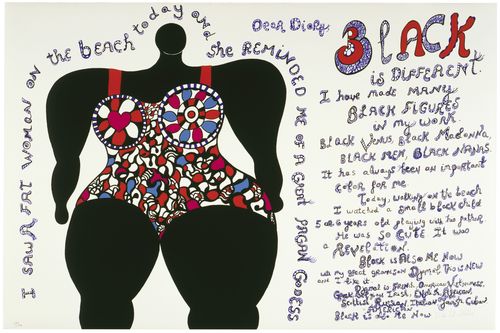 I SAW A FAT WOMAN ON the beach today and she REMINDED ME OF A GIANT PAGAN GODESS
Dear Diary
BLACK
is DIFFERENT.
I have made MANY
BLACK FIGURES
in my work
Black Venus, Black Madonna,
BLACK MEN, BLACK NANAS.
It has always been an important
color for me.
Today, walking on the beach
I watched a small black child
5 or 6 years old playing with his father.
He was SO CUTE It was
a REVELATION.
Black is Also Me Now
with my great grandson
and I like it
Irish, English, African,
Scottish, Russian, Italian, Cuban
AMERICAN
Black is Me Now